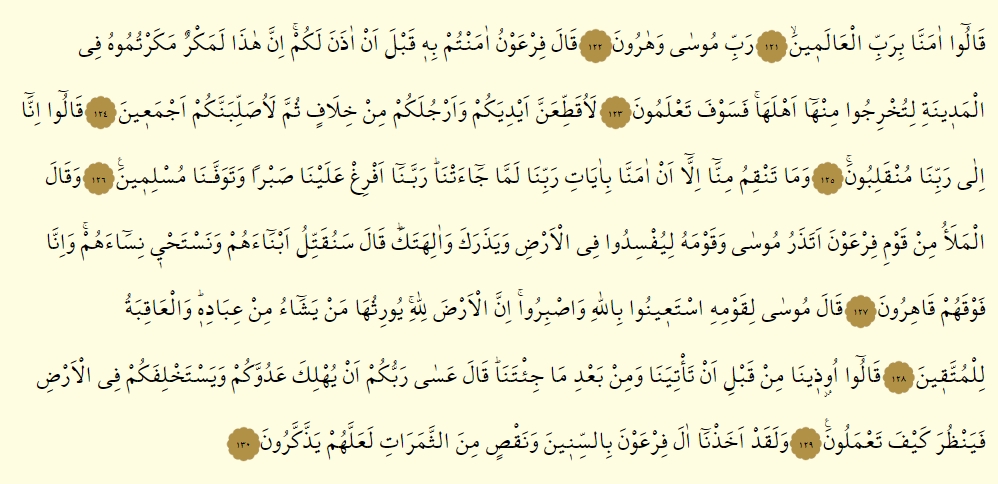 قَالُٓوا اٰمَنَّا بِرَبِّ الْعَالَم۪ينَۙ ﴿١٢١﴾ رَبِّ مُوسٰى وَهٰرُونَ ﴿١٢٢﴾ قَالَ فِرْعَوْنُ اٰمَنْتُمْ بِه۪ قَبْلَ اَنْ اٰذَنَ لَكُمْۚ اِنَّ هٰذَا لَمَكْرٌ مَكَرْتُمُوهُ فِى
الْمَد۪ينَةِ لِتُخْرِجُوا مِنْهَٓا اَهْلَهَاۚ فَسَوْفَ تَعْلَمُونَ ﴿١٢٣﴾ لَاُقَطِّعَنَّ اَيْدِيَكُمْ وَاَرْجُلَكُمْ مِنْ خِلَافٍ ثُمَّ لَاُصَلِّبَنَّكُمْ اَجْمَع۪ينَ ﴿١٢٤﴾ قَالُٓوا اِنَّٓا
اِلٰى رَبِّنَا مُنْقَلِبُونَۚ ﴿١٢٥﴾ وَمَا تَنْقِمُ مِنَّٓا اِلَّٓا اَنْ اٰمَنَّا بِاٰيَاتِ رَبِّنَا لَمَّا جَٓاءَتْنَاۜ رَبَّنَٓا اَفْرِغْ عَلَيْنَا صَبْرًا وَتَوَفَّنَا مُسْلِم۪ينَ۟ ﴿١٢٦﴾ وَقَالَ
الْمَلَأُ مِنْ قَوْمِ فِرْعَوْنَ اَتَذَرُ مُوسٰى وَقَوْمَهُ لِيُفْسِدُوا فِى الْاَرْضِ وَيَذَرَكَ وَاٰلِهَتَكَۜ قَالَ سَنُقَتِّلُ اَبْنَٓاءَهُمْ وَنَسْتَحْي۪ نِسَٓاءَهُمْۚ وَاِنَّا
فَوْقَهُمْ قَاهِرُونَ ﴿١٢٧﴾ قَالَ مُوسٰى لِقَوْمِهِ اسْتَع۪ينُوا بِاللّٰهِ وَاصْبِرُواۚ اِنَّ الْاَرْضَ لِلّٰهِۚ يُورِثُهَا مَنْ يَشَٓاءُ مِنْ عِبَادِه۪ۜ وَالْعَاقِبَةُ
لِلْمُتَّق۪ينَ ﴿١٢٨﴾ قَالُٓوا اُو۫ذ۪ينَا مِنْ قَبْلِ اَنْ تَأْتِيَنَا وَمِنْ بَعْدِ مَا جِئْتَنَاۜ قَالَ عَسٰى رَبُّكُمْ اَنْ يُهْلِكَ عَدُوَّكُمْ وَيَسْتَخْلِفَكُمْ فِى الْاَرْضِ
فَيَنْظُرَ كَيْفَ تَعْمَلُونَ۟ ﴿١٢٩﴾ وَلَقَدْ اَخَذْنَٓا اٰلَ فِرْعَوْنَ بِالسِّن۪ينَ وَنَقْصٍ مِنَ الثَّمَرَاتِ لَعَلَّهُمْ يَذَّكَّرُونَ ﴿١٣٠﴾